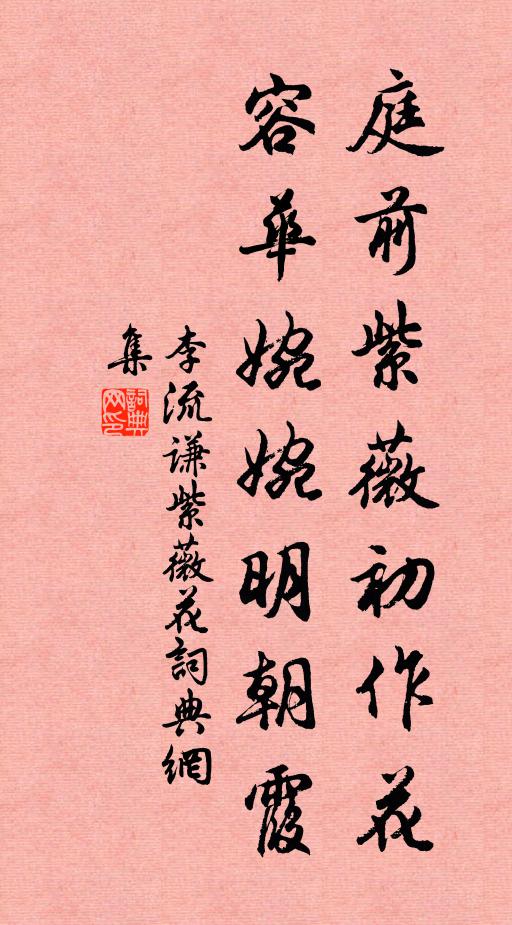 庭前紫薇初作花
容華婉婉明朝霞
李流謙紫薇花詞典網
集
詞典網印